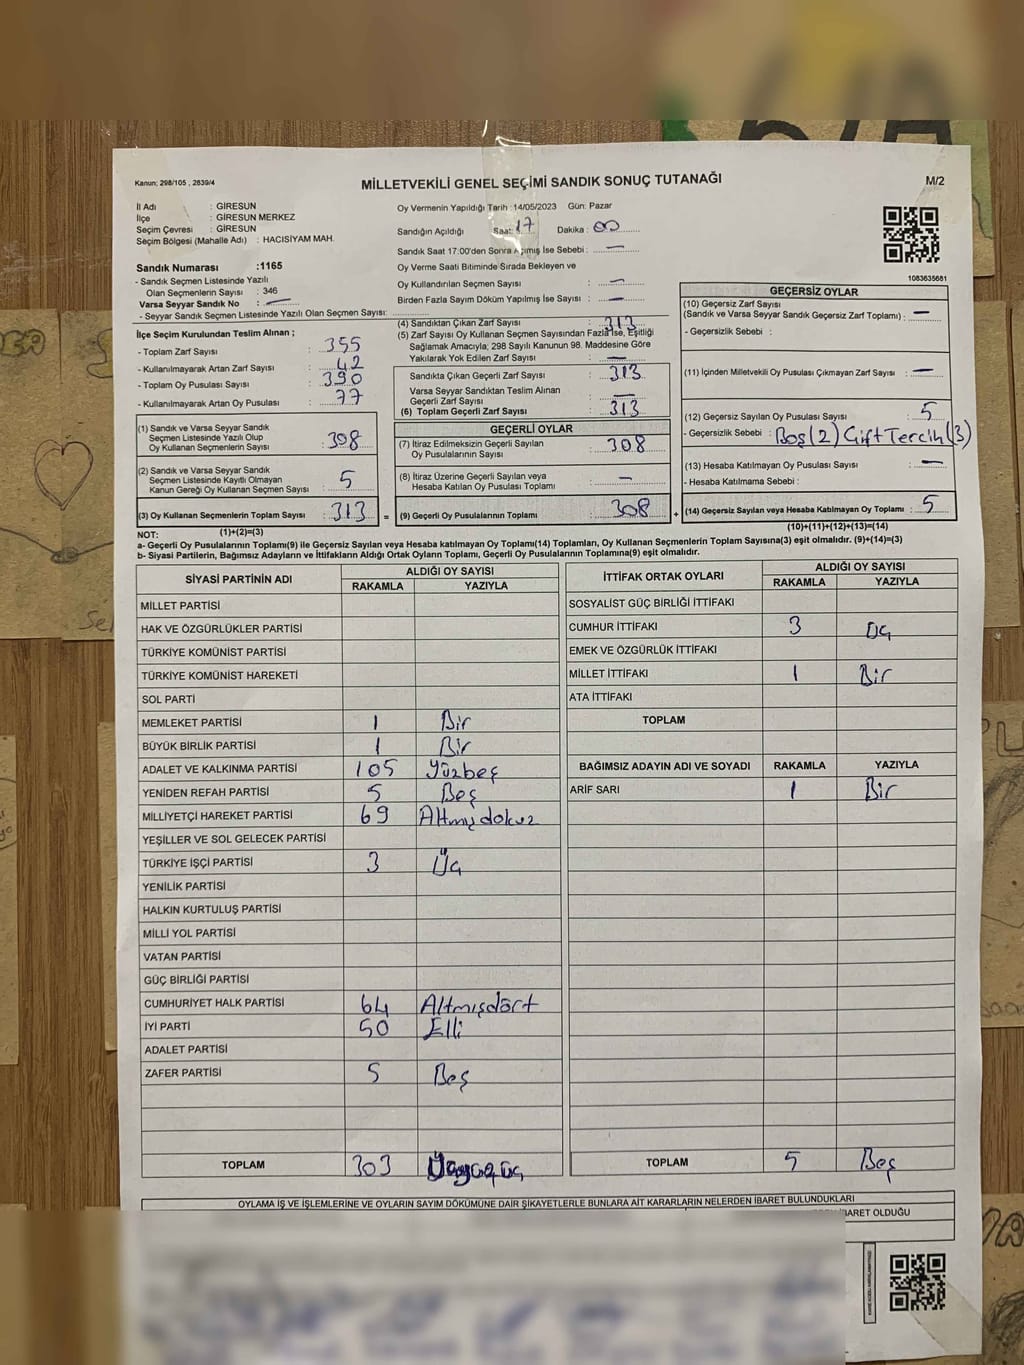 Kanun; 298/105 , 2839/4
MİLLETVEKİLİ GENEL SEÇİMİ SANDIK SONUÇ TUTANAĞI
M/2
İl Adı : GİRESUN
İlçe : GİRESUN MERKEZ
Seçim Çevresi : GİRESUN
Seçim Bölgesi (Mahalle Adı) : HACISİYAM MAH.
Oy Vermenin Yapıldığı Tarih :14/05/2023 Gün: Pazar
Sandığın Açıldığı Saat: 17 Dakika : 00
Sandık Saat 17:00'den Sonra Açılmış İse Sebebi : —
Oy Verme Saati Bitiminde Sırada Bekleyen ve
Oy Kullandırılan Seçmen Sayısı : —
Birden Fazla Sayım Döküm Yapılmış İse Sayısı : —
Sandık Numarası :1165
- Sandık Seçmen Listesinde Yazılı
Olan Seçmenlerin Sayısı : 346
Varsa Seyyar Sandık No : —
- Seyyar Sandık Seçmen Listesinde Yazılı Olan Seçmen Sayısı:
1083635681
İlçe Seçim Kurulundan Teslim Alınan ;
- Toplam Zarf Sayısı : 355
- Kullanılmayarak Artan Zarf Sayısı : 42
- Toplam Oy Pusulası Sayısı : 390
- Kullanılmayarak Artan Oy Pusulası : 77
(1) Sandık ve Varsa Seyyar Sandık
Seçmen Listesinde Yazılı Olup
Oy Kullanan Seçmenlerin Sayısı : 308
(2) Sandık ve Varsa Seyyar Sandık
Seçmen Listesinde Kayıtlı Olmayan
Kanun Gereği Oy Kullanan Seçmen Sayısı : 5
(3) Oy Kullanan Seçmenlerin Toplam Sayısı : 313 =
(4) Sandıktan Çıkan Zarf Sayısı : 313
(5) Zarf Sayısı Oy Kullanan Seçmen Sayısından Fazla İse, Eşitliği
Sağlamak Amacıyla; 298 Sayılı Kanunun 98. Maddesine Göre
Yakılarak Yok Edilen Zarf Sayısı : —
Sandıkta Çıkan Geçerli Zarf Sayısı : 313
Varsa Seyyar Sandıktan Teslim Alınan
Geçerli Zarf Sayısı : —
(6) Toplam Geçerli Zarf Sayısı : 313
GEÇERLİ OYLAR
(7) İtiraz Edilmeksizin Geçerli Sayılan
Oy Pusulalarının Sayısı : 308
(8) İtiraz Üzerine Geçerli Sayılan veya
Hesaba Katılan Oy Pusulası Toplamı : —
(9) Geçerli Oy Pusulalarının Toplamı : 308 +
GEÇERSİZ OYLAR
(10) Geçersiz Zarf Sayısı
(Sandık ve Varsa Seyyar Sandık Geçersiz Zarf Toplamı) : —
- Geçersizlik Sebebi :
(11) İçinden Milletvekili Oy Pusulası Çıkmayan Zarf Sayısı : —
(12) Geçersiz Sayılan Oy Pusulası Sayısı : 5
- Geçersizlik Sebebi : Boş (2) Çift Tercih (3)
(13) Hesaba Katılmayan Oy Pusulası Sayısı : —
- Hesaba Katılmama Sebebi :
(14) Geçersiz Sayılan veya Hesaba Katılmayan Oy Toplamı : 5
NOT: (1)+(2)=(3) (10)+(11)+(12)+(13)=(14)
a- Geçerli Oy Pusulalarının Toplamı(9) ile Geçersiz Sayılan veya Hesaba katılmayan Oy Toplamı(14) Toplamları, Oy Kullanan Seçmenlerin Toplam Sayısına(3) eşit olmalıdır. (9)+(14)=(3)
b- Siyasi Partilerin, Bağımsız Adayların ve İttifakların Aldığı Ortak Oyların Toplamı, Geçerli Oy Pusulalarının Toplamına(9) eşit olmalıdır.
SİYASİ PARTİNİN ADI ALDIĞI OY SAYISI
RAKAMLA YAZIYLA
MİLLET PARTİSİ
HAK VE ÖZGÜRLÜKLER PARTİSİ
TÜRKİYE KOMÜNİST PARTİSİ
TÜRKİYE KOMÜNİST HAREKETİ
SOL PARTİ
MEMLEKET PARTİSİ 1 Bir
BÜYÜK BİRLİK PARTİSİ 1 Bir
ADALET VE KALKINMA PARTİSİ 105 Yüzbeş
YENİDEN REFAH PARTİSİ 5 Beş
MİLLİYETÇİ HAREKET PARTİSİ 69 Altmışdokuz
YEŞİLLER VE SOL GELECEK PARTİSİ
TÜRKİYE İŞÇİ PARTİSİ 3 Üç
YENİLİK PARTİSİ
HALKIN KURTULUŞ PARTİSİ
MİLLİ YOL PARTİSİ
VATAN PARTİSİ
GÜÇ BİRLİĞİ PARTİSİ
CUMHURİYET HALK PARTİSİ 64 Altmışdört
İYİ PARTİ 50 Elli
ADALET PARTİSİ
ZAFER PARTİSİ 5 Beş
TOPLAM 303
İTTİFAK ORTAK OYLARI ALDIĞI OY SAYISI
RAKAMLA YAZIYLA
SOSYALİST GÜÇ BİRLİĞİ İTTİFAKI
CUMHUR İTTİFAKI 3 Üç
EMEK VE ÖZGÜRLÜK İTTİFAKI
MİLLET İTTİFAKI 1 Bir
ATA İTTİFAKI
TOPLAM
BAĞIMSIZ ADAYIN ADI VE SOYADI RAKAMLA YAZIYLA
ARİF SARI 1 Bir
TOPLAM 5 Beş
OYLAMA İŞ VE İŞLEMLERİNE VE OYLARIN SAYIM DÖKÜMÜNE DAİR ŞİKAYETLERLE BUNLARA AİT KARARLARIN NELERDEN İBARET BULUNDUKLARI
İBARET OLDUĞU